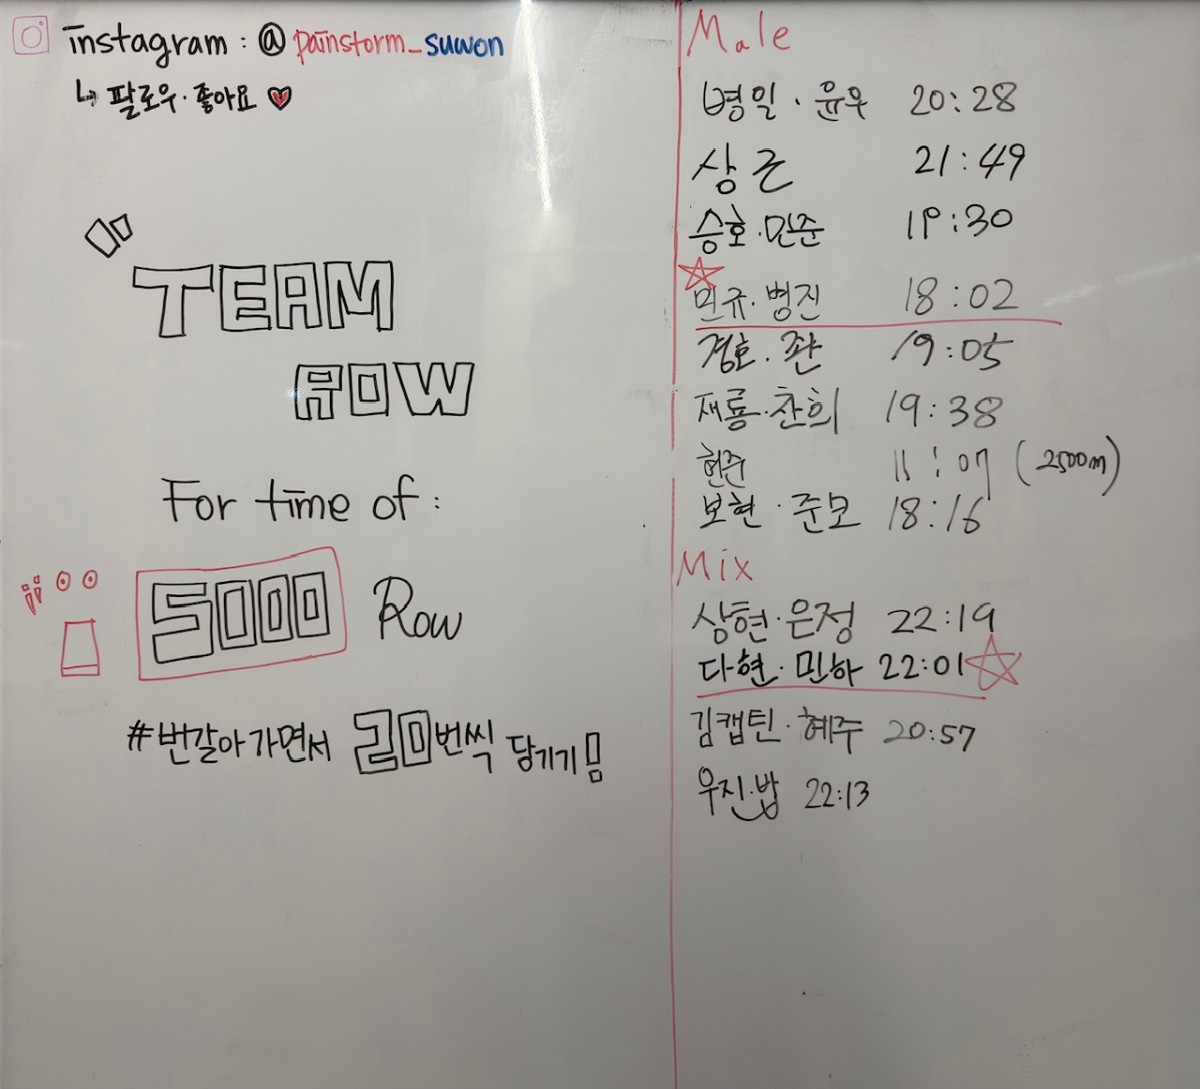 instagram : @painstorm_suwon
↳ 팔로우·좋아요 ♥
"TEAM
ROW
For time of :
5000 Row
#번갈아가면서 20번씩 당기기!
Male
병일 · 윤우 20:28
상근 21:49
승호·민준 19:30
☆
민규·병진 18:02
경호·좐 19:05
재룡·찬희 19:38
현준 11:07 (2500m)
보현·준모 18:16
Mix
상현·은정 22:19
다현·민하 22:01 ☆
김캡틴·혜주 20:57
우진·밥 22:13